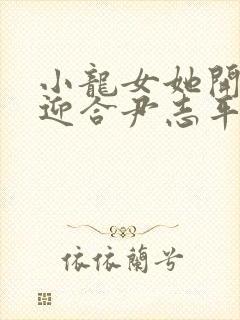 小龍女她開
迎合尹志平
依依蘭兮